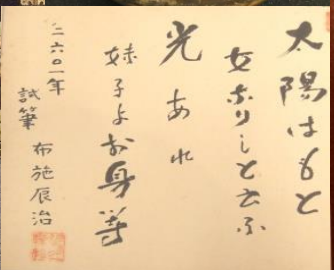 太陽はもと
女なりしと云ふ
光あれ
妹子よお身等
二六〇一年
試筆 布施辰治